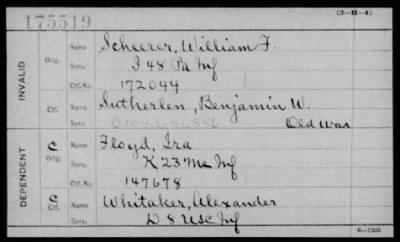 175519
(3-H-4)
INVALID
Orig. Name Scheerer, William F.
Serv. I 48 Pa Inf
Ctf. No. 172044
Ctf. Name Sutherlen, Benjamin W.
Serv. Old War
DEPENDENT
C Orig. Name Floyd, Ira
Serv. K 23 Me Inf
Ctf. No. 147678
C Ctf. Name Whitaker, Alexander
Serv. D 8 USC Inf